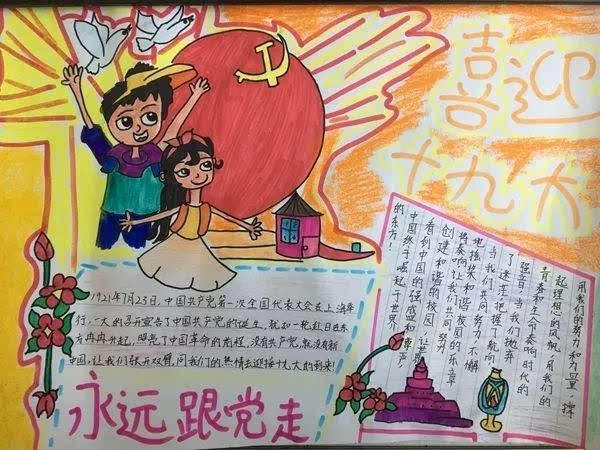 喜迎
十九大
1921年7月23日,中国共产党第一次全国代表大会在上海举
行,一大的召开宣告了中国共产党的诞生,犹如一轮红日在东
方冉冉升起,照亮了中国革命的前程,没有共产党,就没有新
中国,让我们张开双臂,用我们的热情去迎接十九大的到来!
永远跟党走
用我们的努力和力量,撑
起理想的风帆,用我们的
青春和生命奏响时代的
强音,当我们抛弃
了迷茫把握了航向
当我们共同努力不懈
地接奖和谐校园的乐章
将奏响让我们共同努力
创建和谐的校园让世界
看到中国的强盛和
中国终于崛起于世界
的东方!